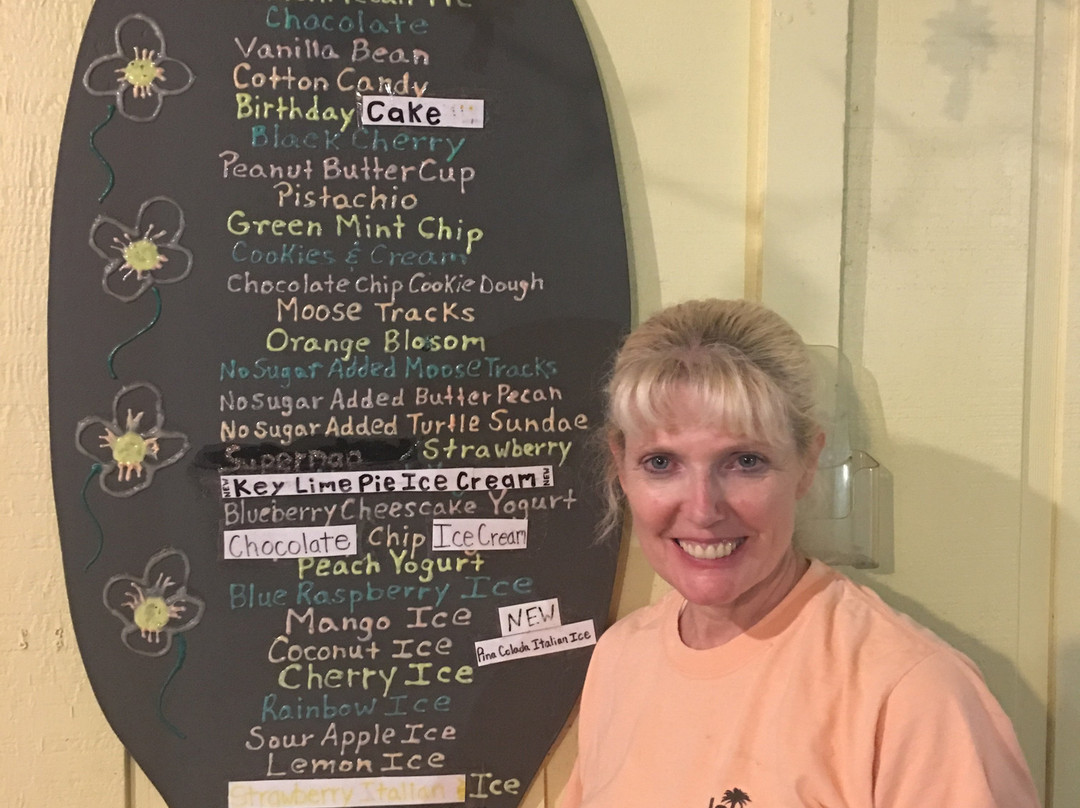 Chocolate
Vanilla Bean
Cotton Candy
Birthday Cake
Black Cherry
Peanut Butter Cup
Pistachio
Green Mint Chip
Cookies & Cream
Chocolate Chip Cookie Dough
Moose Tracks
Orange Blosom
No Sugar Added Moose Tracks
No Sugar Added Butter Pecan
No Sugar Added Turtle Sundae
Superman Strawberry
NEW Key Lime Pie Ice Cream NEW
Blueberry Cheescake Yogurt
Chocolate Chip Ice Cream
Peach Yogurt
Blue Raspberry Ice
Mango Ice NEW
Coconut Ice Pina Colada Italian Ice
Cherry Ice
Rainbow Ice
Sour Apple Ice
Lemon Ice
Strawberry Italian Ice